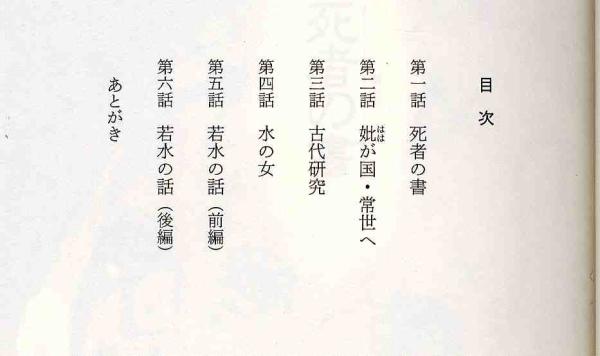 目次
第一話 死者の書
第二話 妣が国・常世へ
はは
第三話 古代研究
第四話 水の女
第五話 若水の話（前編）
第六話 若水の話（後編）
あとがき
死者の書